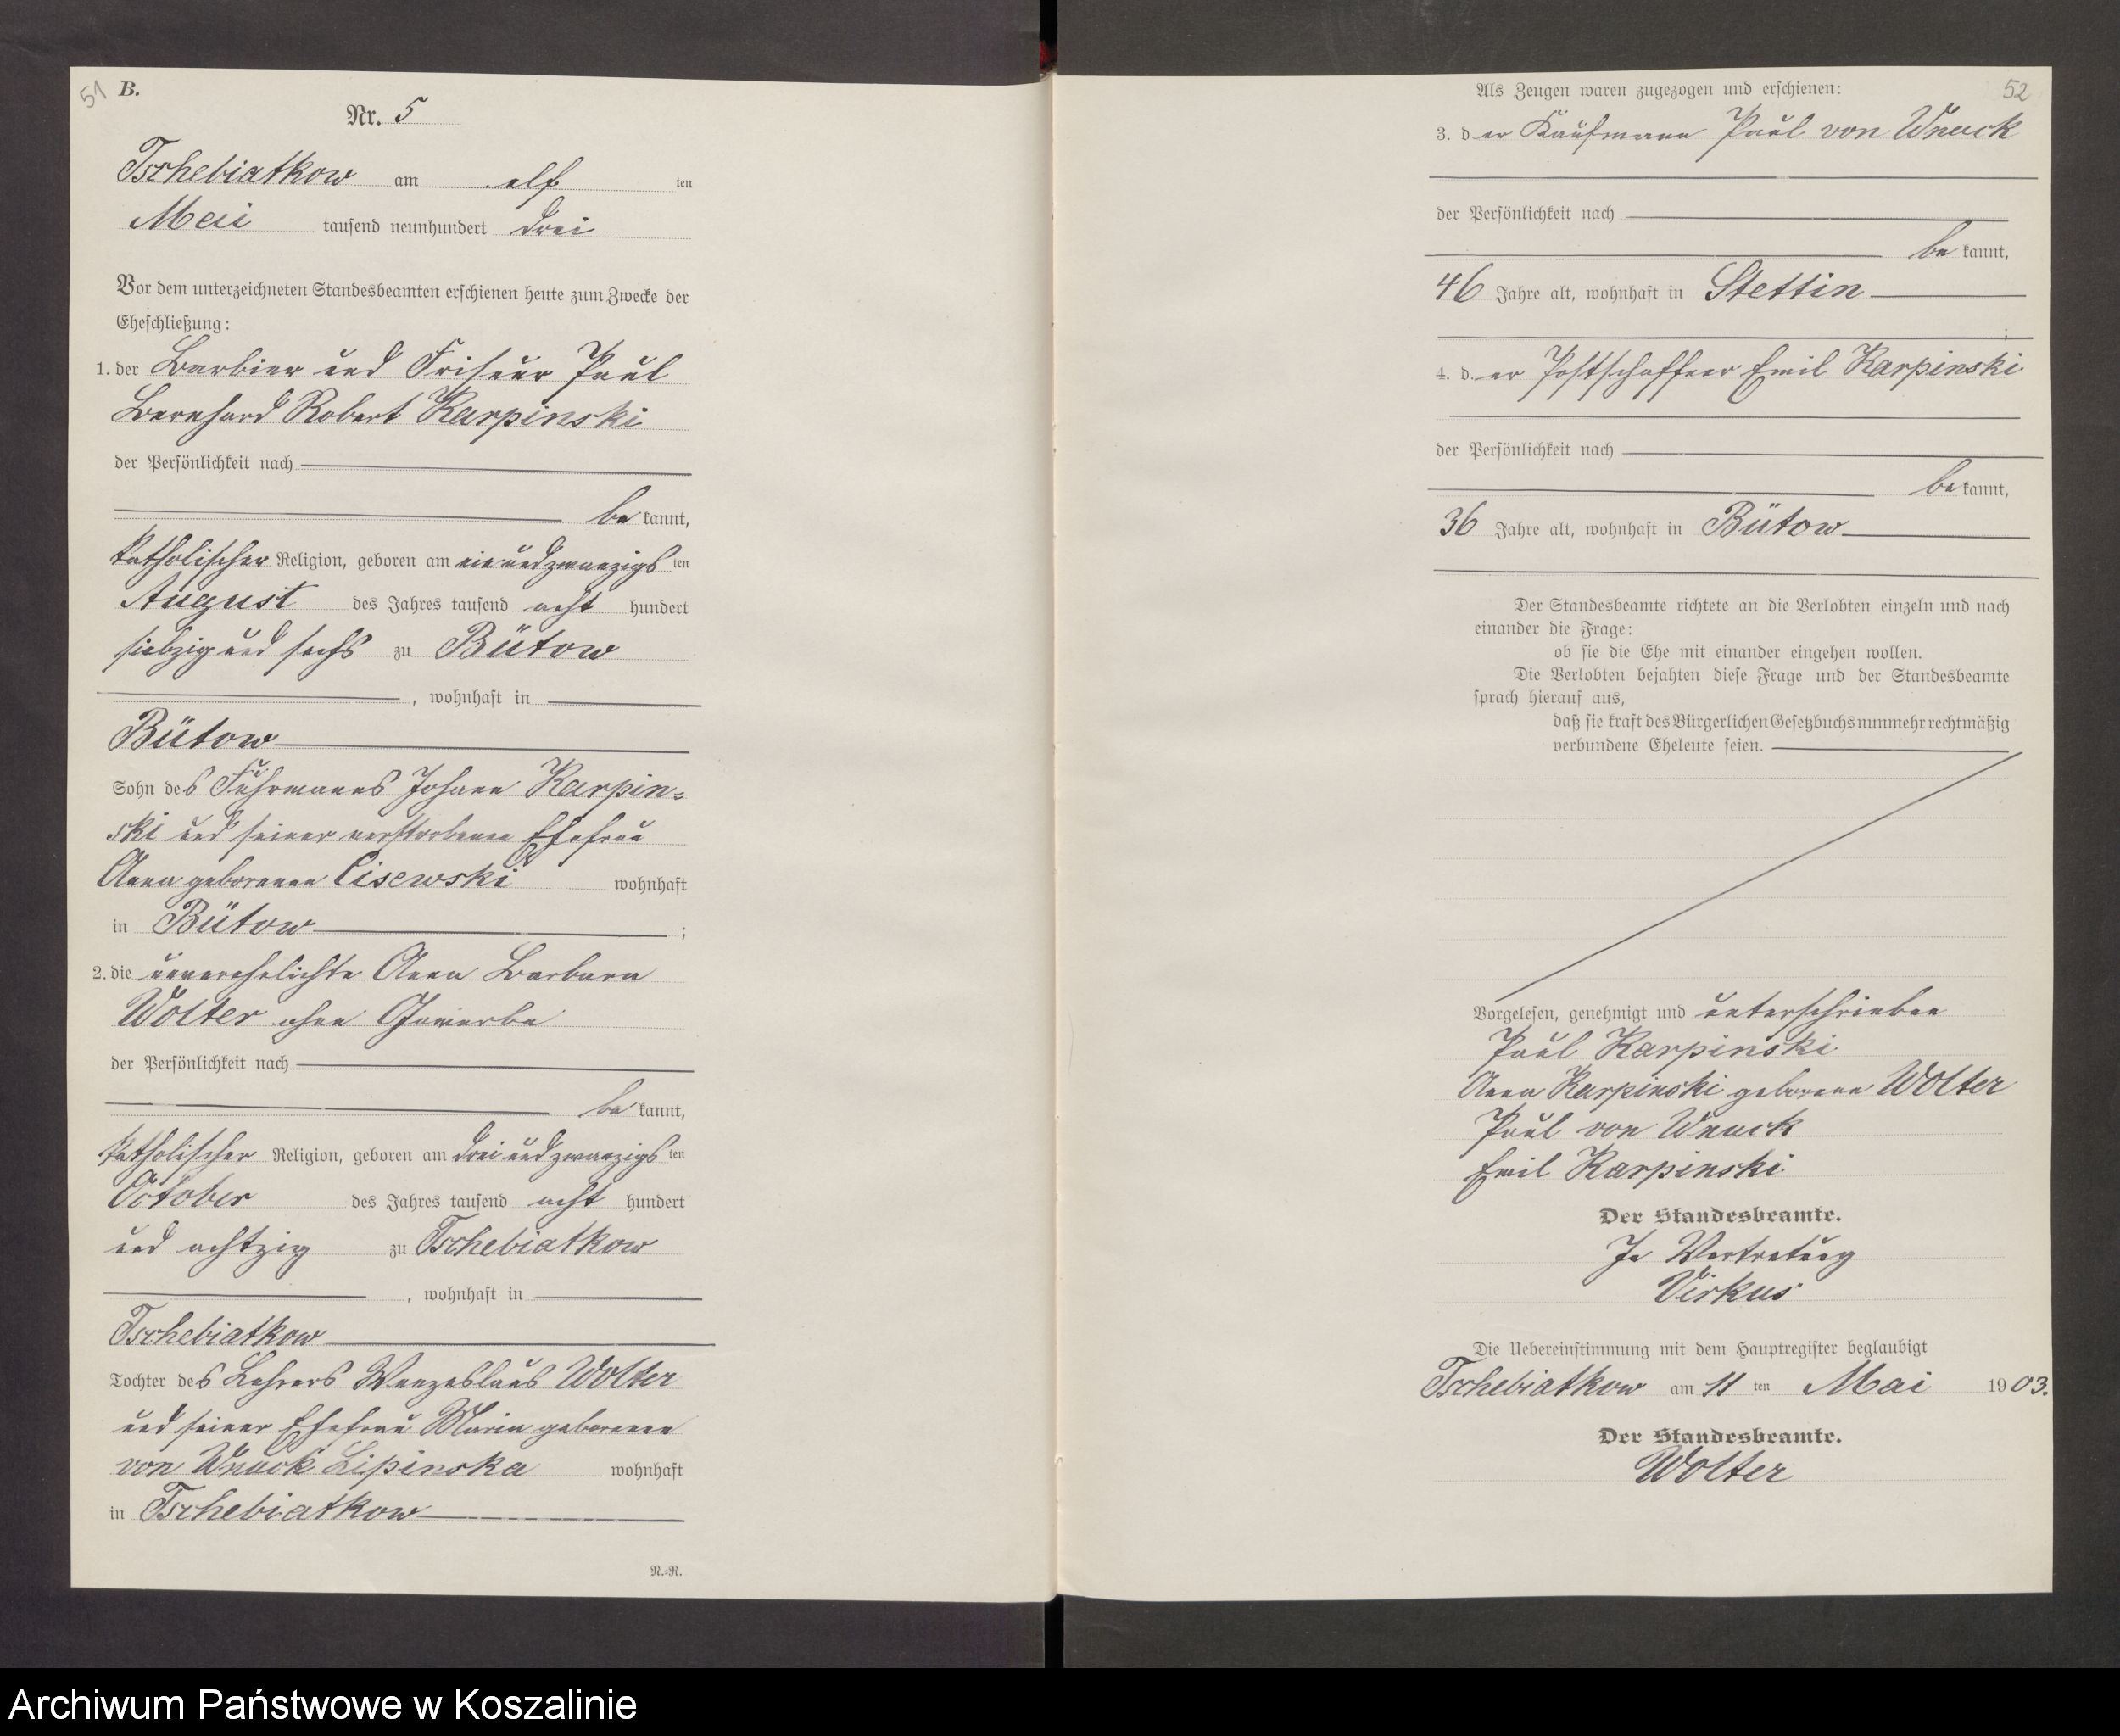 51 B.
Nr. 5
Tschebiatkow am elf ten
Mai tausend neunhundert drei
Vor dem unterzeichneten Standesbeamten erschienen heute zum Zwecke der
Eheschließung:
1. der Barbier und Friseur Paul
Bernhard Robert Karpinski
der Persönlichkeit nach
be kannt,
katholischer Religion, geboren am einundzwanzigs ten
August des Jahres tausend acht hundert
siebzig und sechs zu Bütow
, wohnhaft in
Bütow
Sohn des Fuhrmannes Johann Karpin=
ski und seiner verstorbenen Ehefrau
Anna geborenen Cisewski wohnhaft
in Bütow ;
2. die unverehelichte Anna Barbara
Wolter ohne Gewerbe
der Persönlichkeit nach
be kannt,
katholischer Religion, geboren am dreiundzwanzigs ten
October des Jahres tausend acht hundert
und achtzig zu Tschebiatkow
, wohnhaft in
Tschebiatkow
Tochter des Lehrers Wenzeslaus Wolter
und seiner Ehefrau Maria geborenen
von Wnuck Lipinska wohnhaft
in Tschebiatkow
N.=N.
Als Zeugen waren zugezogen und erschienen: 52
3. d er Kaufmann Paul von Wnuck
der Persönlichkeit nach
be kannt,
46 Jahre alt, wohnhaft in Stettin
;
4. d er Postschaffner Emil Karpinski
der Persönlichkeit nach
be kannt,
36 Jahre alt, wohnhaft in Bütow
Der Standesbeamte richtete an die Verlobten einzeln und nach
einander die Frage:
ob sie die Ehe mit einander eingehen wollen.
Die Verlobten bejahten diese Frage und der Standesbeamte
sprach hierauf aus,
daß sie kraft des Bürgerlichen Gesetzbuchs nunmehr rechtmäßig
verbundene Eheleute seien.
Vorgelesen, genehmigt und unterschrieben
Paul Karpinski
Anna Karpinski geborene Wolter
Paul von Wnuck
Emil Karpinski
Der Standesbeamte.
In Vertretung
Virkus
Die Uebereinstimmung mit dem Hauptregister beglaubigt
Tschebiatkow am 11 ten Mai 19 03.
Der Standesbeamte.
Wolter
Archiwum Państwowe w Koszalinie